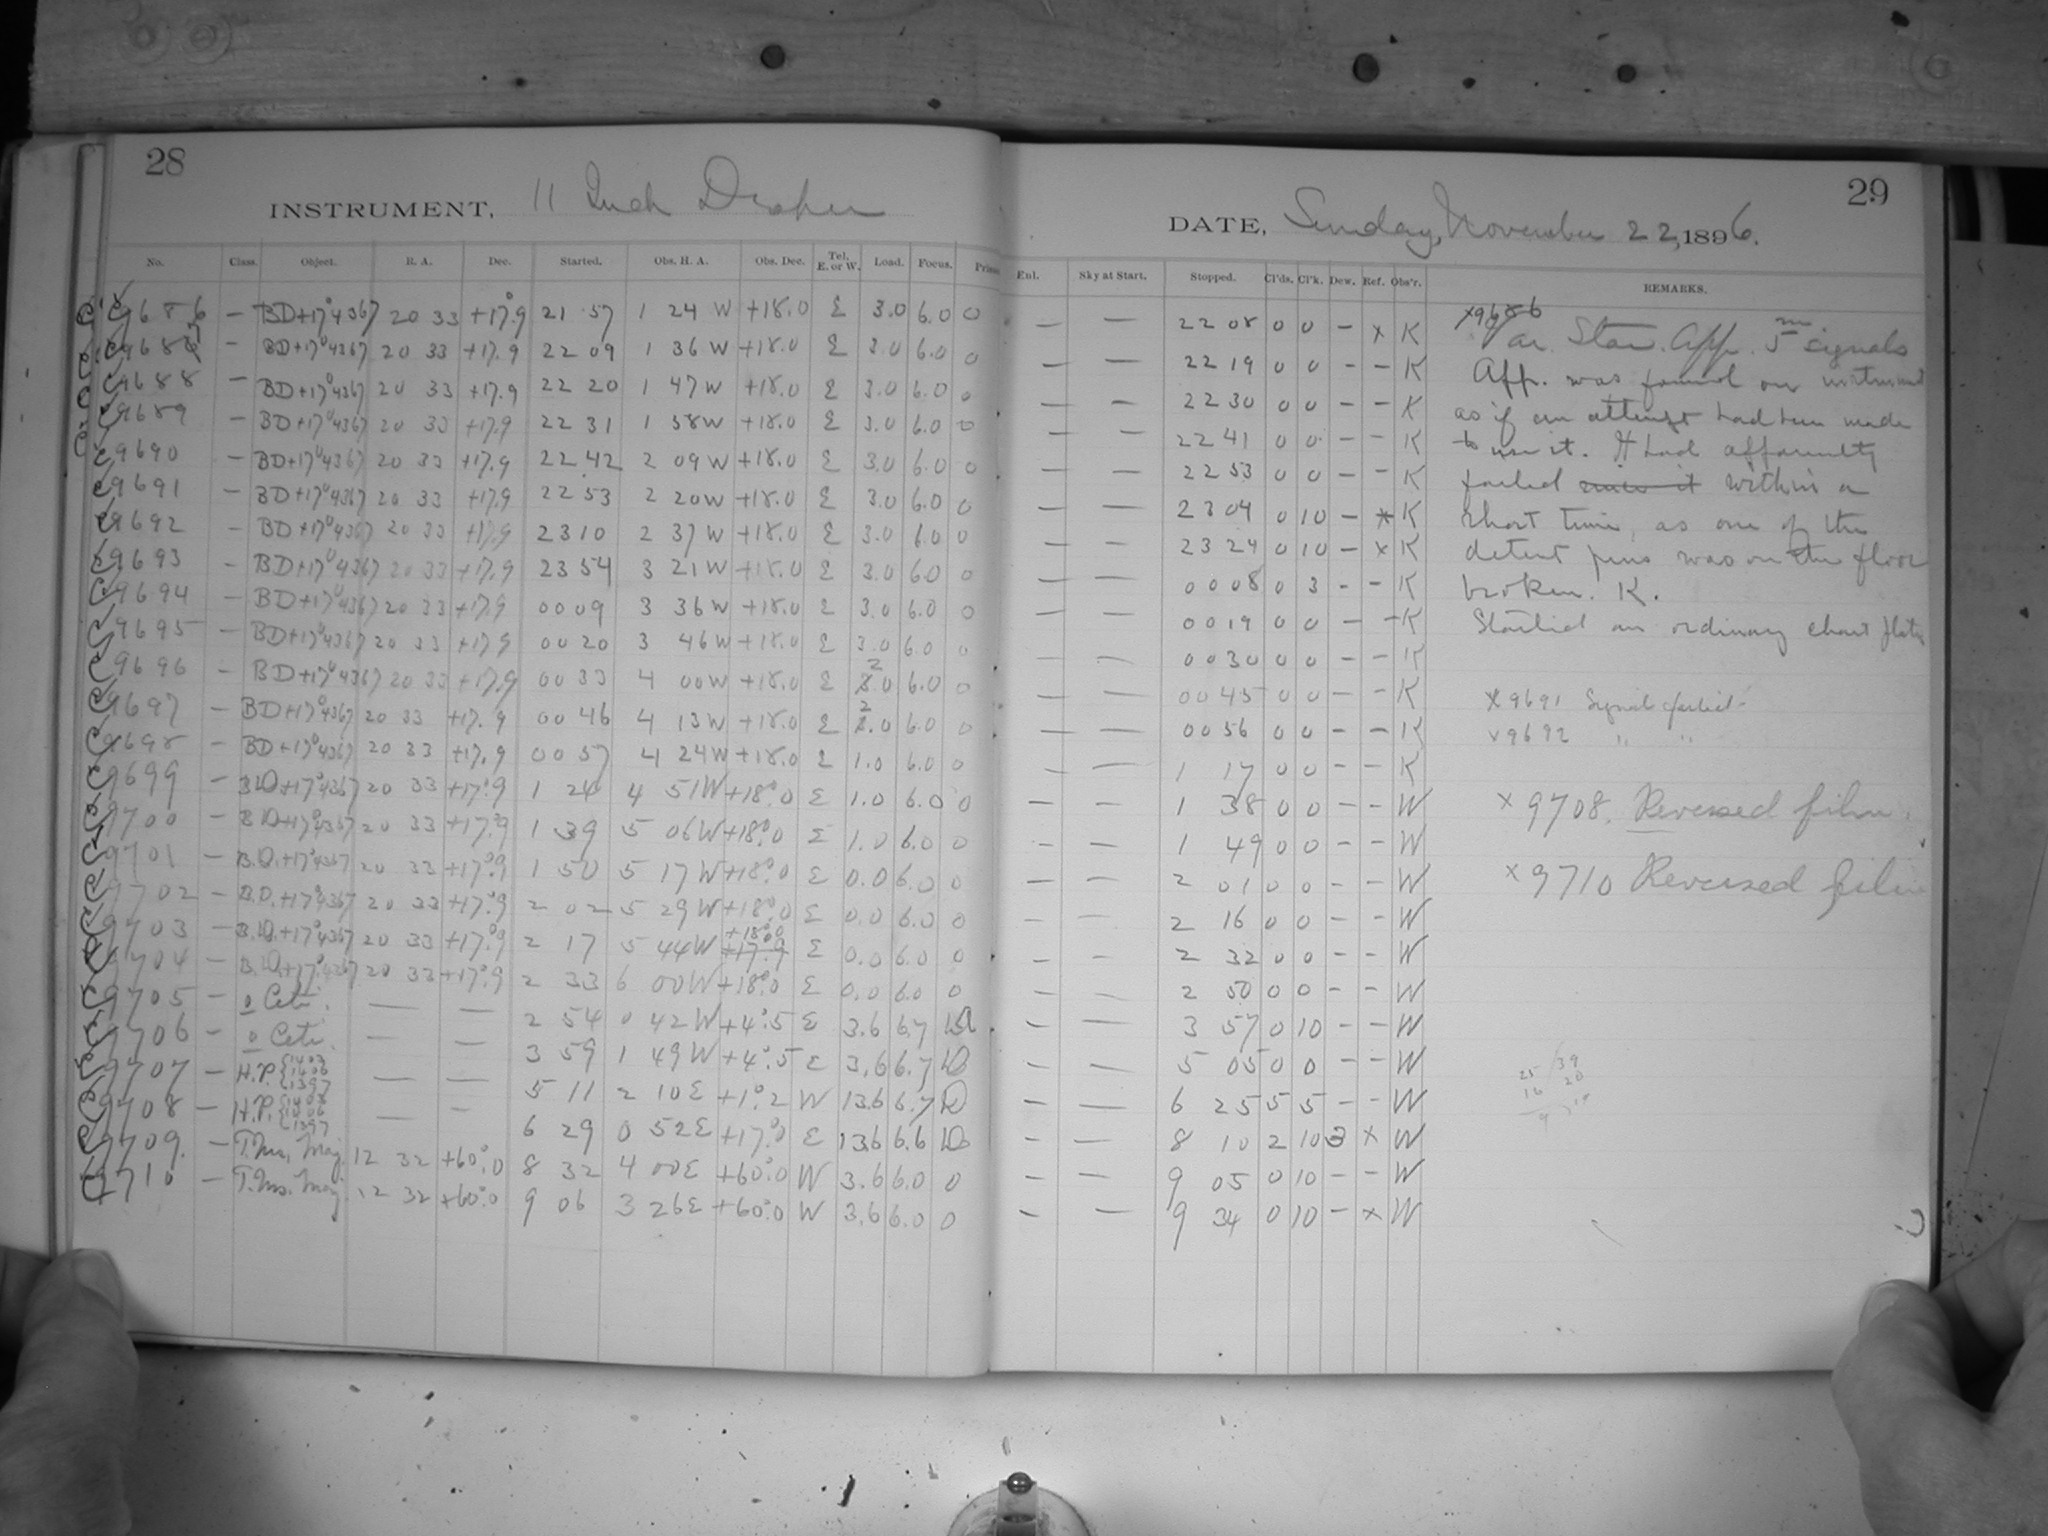 28
INSTRUMENT, 11 Inch Draper
No. Class. Object. R. A. Dec. Started. Obs. H. A. Obs. Dec. Tel. E. or W. Load. Focus.
C 9686 — BD+17°4367 20 33 +17°.9 21 57 1 24 W +18.0 E 3.0 6.0 0
C 9687 — BD+17°4367 20 33 +17.9 22 09 1 36 W +18.0 E 3.0 6.0 0
C 9688 — BD+17°4367 20 33 +17.9 22 20 1 47 W +18.0 E 3.0 6.0 0
C 9689 — BD+17°4367 20 33 +17.9 22 31 1 58 W +18.0 E 3.0 6.0 0
C 9690 — BD+17°4367 20 33 +17.9 22 42 2 09 W +18.0 E 3.0 6.0 0
C 9691 — BD+17°4367 20 33 +17.9 22 53 2 20 W +18.0 E 3.0 6.0 0
C 9692 — BD+17°4367 20 33 +17.9 23 10 2 37 W +18.0 E 3.0 6.0 0
C 9693 — BD+17°4367 20 33 +17.9 23 54 3 21 W +18.0 E 3.0 6.0 0
C 9694 — BD+17°4367 20 33 +17.9 00 09 3 36 W +18.0 E 3.0 6.0 0
C 9695 — BD+17°4367 20 33 +17.9 00 20 3 46 W +18.0 E 3.0 6.0 0
C 9696 — BD+17°4367 20 33 +17.9 00 33 4 00 W +18.0 E 2.0 6.0 0
C 9697 — BD+17°4367 20 33 +17.9 00 46 4 13 W +18.0 E 2.0 6.0 0
C 9698 — BD+17°4367 20 33 +17.9 00 57 4 24 W +18.0 E 1.0 6.0 0
C 9699 — B.D.+17°4367 20 33 +17°.9 1 24 4 51 W +18°.0 E 1.0 6.0 0
C 9700 — B.D.+17°4367 20 33 +17°.9 1 39 5 06 W +18°.0 E 1.0 6.0 0
C 9701 — B.D.+17°4367 20 33 +17°.9 1 50 5 17 W +18°.0 E 0.0 6.0 0
C 9702 — B.D.+17°4367 20 33 +17°.9 2 02 5 29 W +18°.0 E 0.0 6.0 0
C 9703 — B.D.+17°4367 20 33 +17°.9 2 17 5 44 W +18°.0 +17.9 E 0.0 6.0 0
C 9704 — B.D.+17°4367 20 33 +17°.9 2 33 6 00 W +18°.0 E 0.0 6.0 0
C 9705 — o Ceti. — — 2 54 0 42 W +4°.5 E 3.6 6.7
C 9706 — o Ceti. — — 3 59 1 49 W +4°.5 E 3.6 6.7
C 9707 — H.P. — — 5 11 2 10 E +1°.2 W 13.6 6.7
C 9708 — H.P. — — 6 29 0 52 E +17°.0 E 13.6 6.6
C 9709. — 12 32 +60°.0 8 32 4 00 E +60°.0 W 3.6 6.0 0
9710 — 12 32 +60°.0 9 06 3 26 E +60°.0 W 3.6 6.0 0
29
DATE, Sunday, November 22, 1896.
Eul. Sky at Start. Stopped. Cl'ds. Cl'k. Dew. Ref. Obs'r. REMARKS.
— — 22 08 0 0 – x K
— — 22 19 0 0 – – K
— — 22 30 0 0 – – K
— — 22 41 0 0 – – K
— — 22 53 0 0 – – K
— — 23 04 0 10 – x K
— — 23 24 0 10 – x K
— — 00 08 0 3 – – K
— — 00 19 0 0 – – K
— — 00 30 0 0 – – K
— — 00 45 0 0 – – K
— — 00 56 0 0 – – K
— — 1 17 0 0 – – K
— — 1 38 0 0 – – W
— — 1 49 0 0 – – W
— — 2 01 0 0 – – W
— — 2 16 0 0 – – W
— — 2 32 0 0 – – W
— — 2 50 0 0 – – W
— — 3 57 0 10 – – W
— — 5 05 0 0 – – W
— — 6 25 5 5 – – W
— — 8 10 2 10 3 x W
— — 9 05 0 10 – – W
— — 9 34 0 10 – x W
x9686
Var. Star. App. 5m signals
App. was found on instrument
as if an attempt had been made
to use it. It had apparently
failed within a
short time, as one of the
detent pins was on the floor
broken. K.
Started on ordinary chart plate
x 9691 Signals failed
x 9692 " "
x 9708. Reversed film.
x 9710 Reversed film